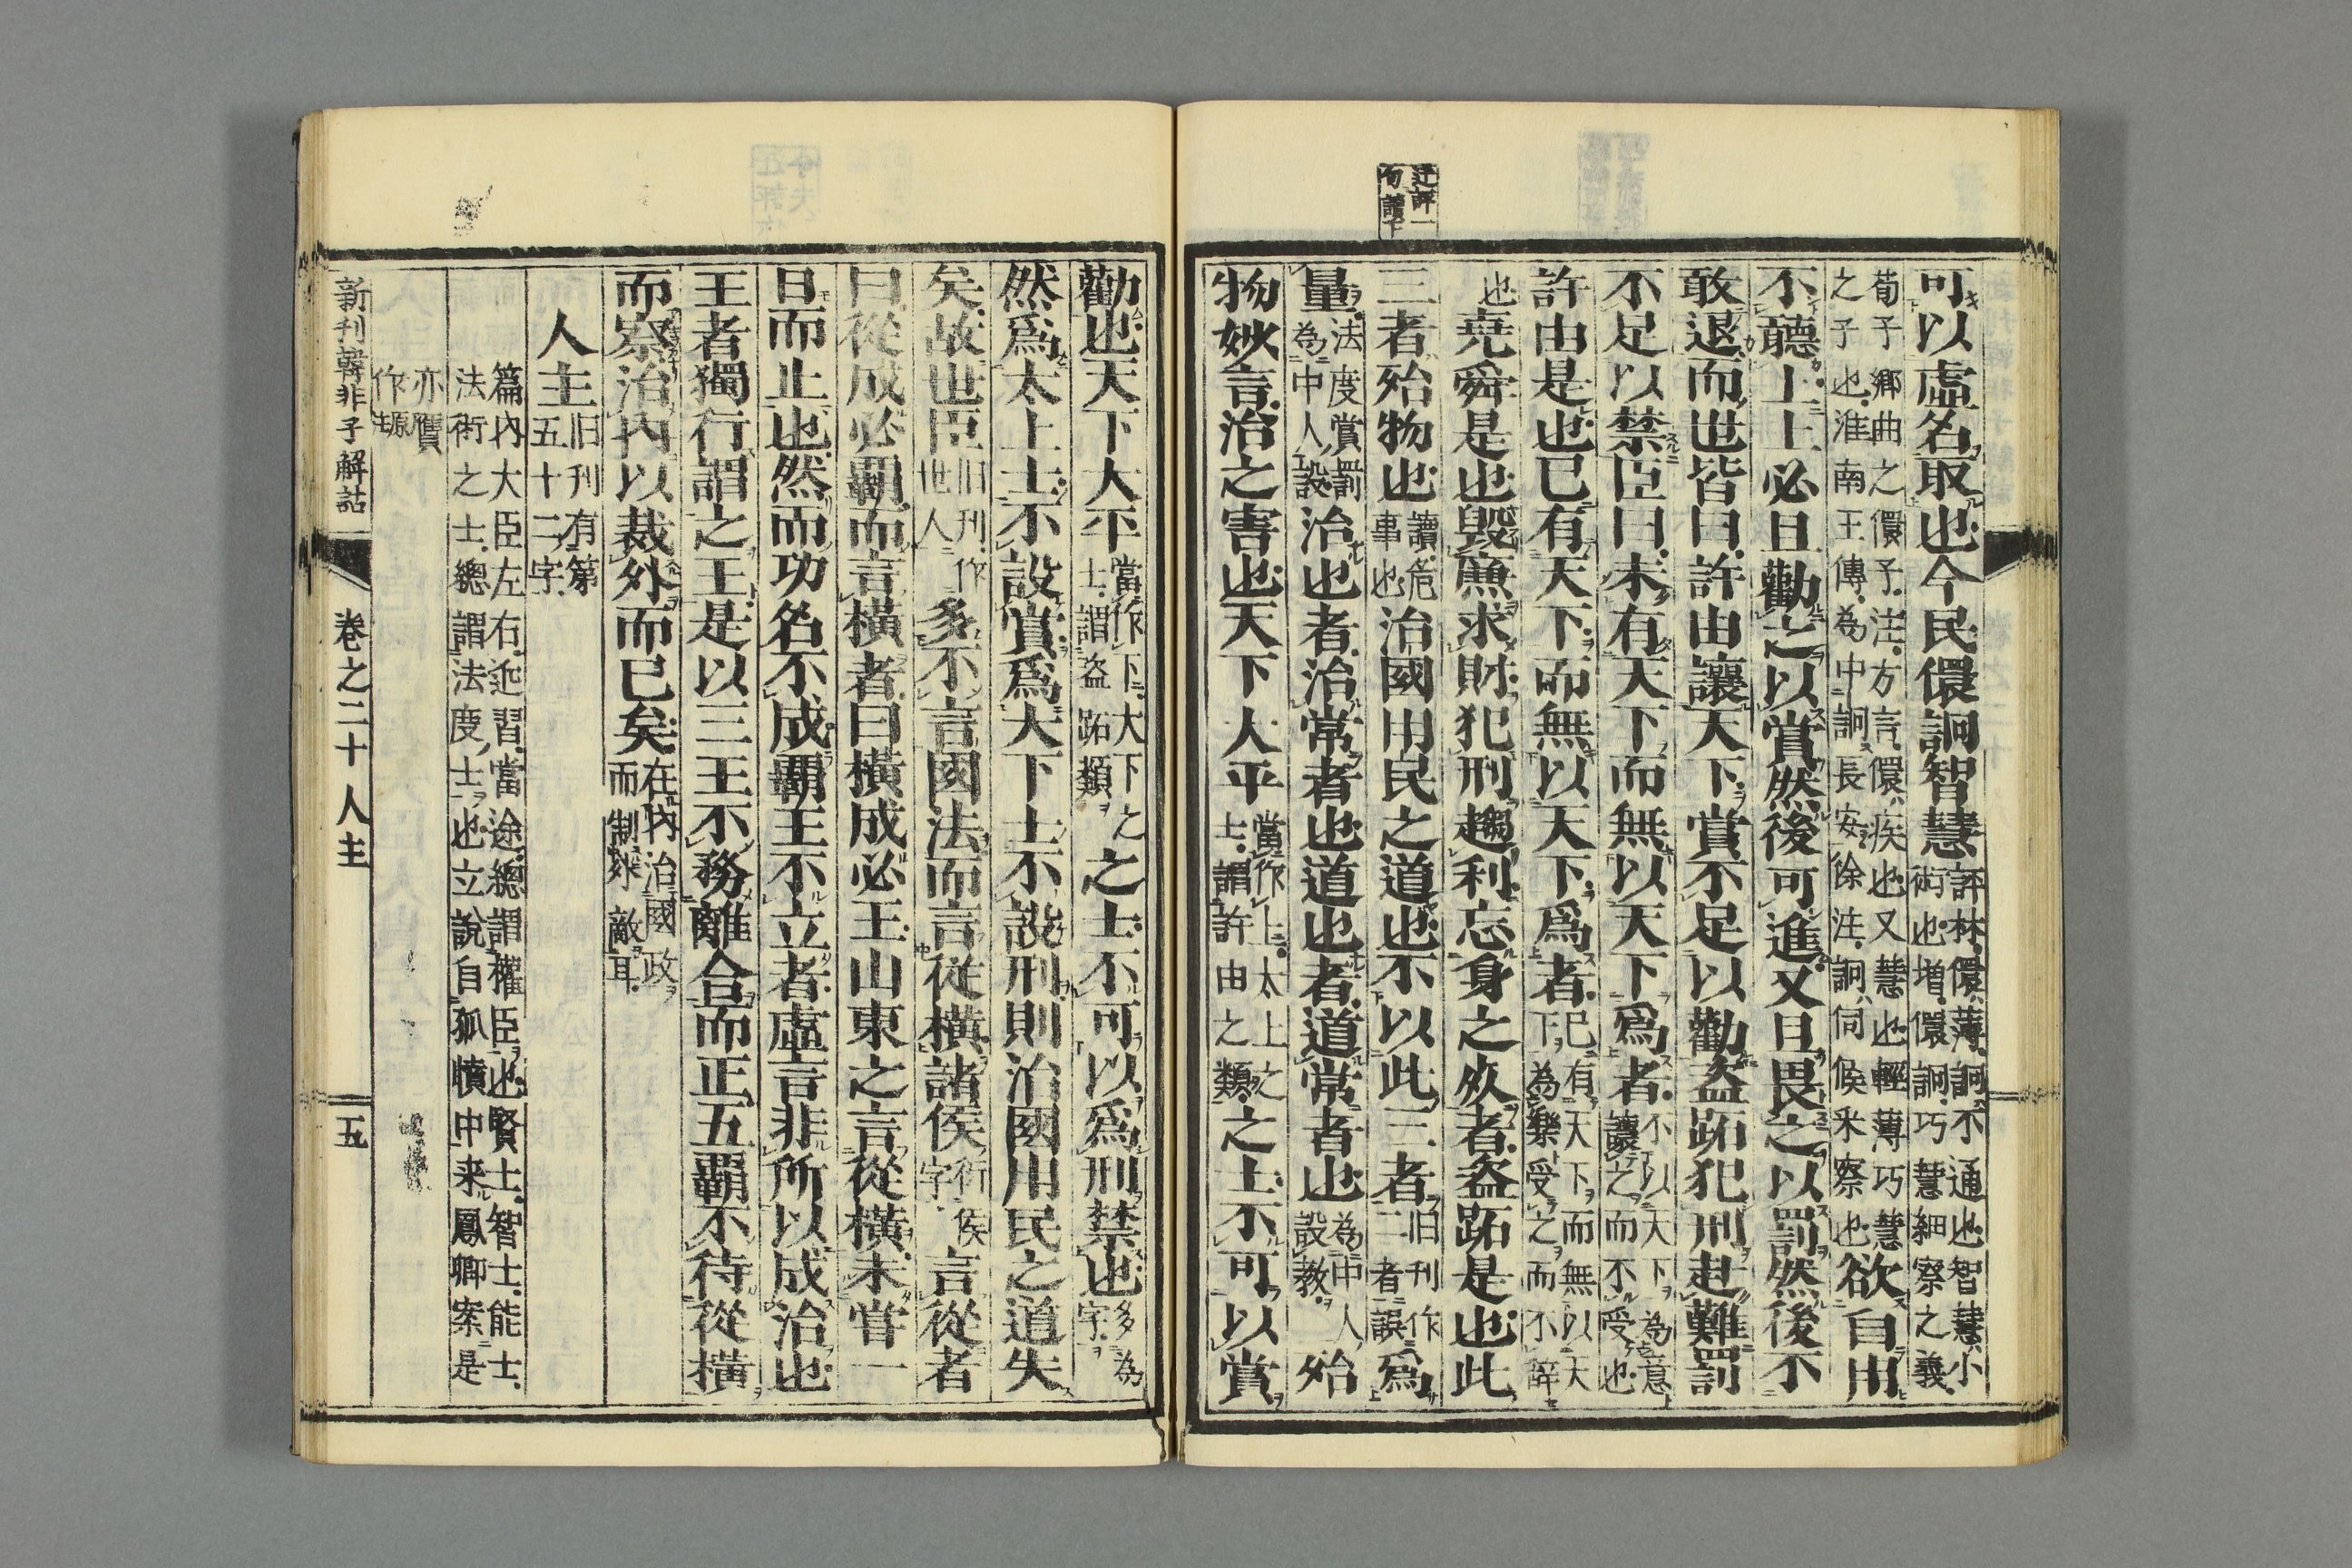 迂評一
句讀下
可以虛名取也今民儇詗智慧評林儇薄詗不通也智慧小術也増儇詗巧慧細察之義
荀子鄉曲之儇子注方言儇疾也又慧也輕薄巧慧之子也淮南王傳為中詗長安徐注詗伺候采察也欲自用
不聽上上必且勸之以賞然後可進又且畏之以罰然後不
敢退而世皆曰許由讓天下賞不足以勸盜跖犯刑赴難罰
不足以禁臣曰未有天下而無以天下爲者不以天下為意讓之而不受也
許由是也已有天下而無以天下爲者已有天下而無以天下為樂受之而不辭
也堯舜是也毀廉求財犯刑趨利忘身之死者盜跖是也此
三者殆物也讀危事也治國用民之道也不以此三者旧刊作二者誤爲
量法度賞罰為中人設治也者治常者也道也者道常者也為中人設教殆
物妙言治之害也天下太平當作上太上之士謂許由之類之士不可以賞
勸也天下太平當作下大下之士謂盜跖類之士不可以爲刑禁也多為字
然爲太上士不設賞爲太下士不設刑則治國用民之道失
矣故世臣旧刊作世人多不言國法而言從橫諸侯衍侯字言從者
曰從成必霸而言橫者曰橫成必王山東之言從橫未嘗一
日而止也然而功名不成霸王不立者虛言非所以成治也
王者獨行謂之王是以三王不務離合而正五霸不待從橫
而察治內以裁外而已矣在內治國政而制外敵耳
人主旧刊有第五十二字
篇內大臣左右近習當途總謂權臣也賢士智士能士
法術之士總謂法度士也立說自孤憤中来鳳卿案是
亦贋
作原注
新刊韓非子解詁
卷之二十人主
五